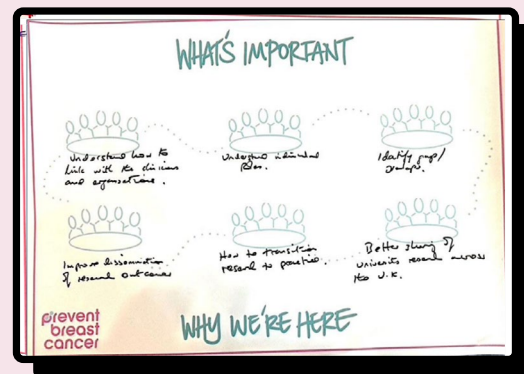 WHAT'S IMPORTANT
Understand how to
link with the clinicians
and organisations.
Understand individual
roles.
Identify gaps/
Improve dissemination
of research outcomes
How to transition
research to practice.
Better sharing of
university research across
the U.K.
prevent
breast
cancer
WHY WE'RE HERE